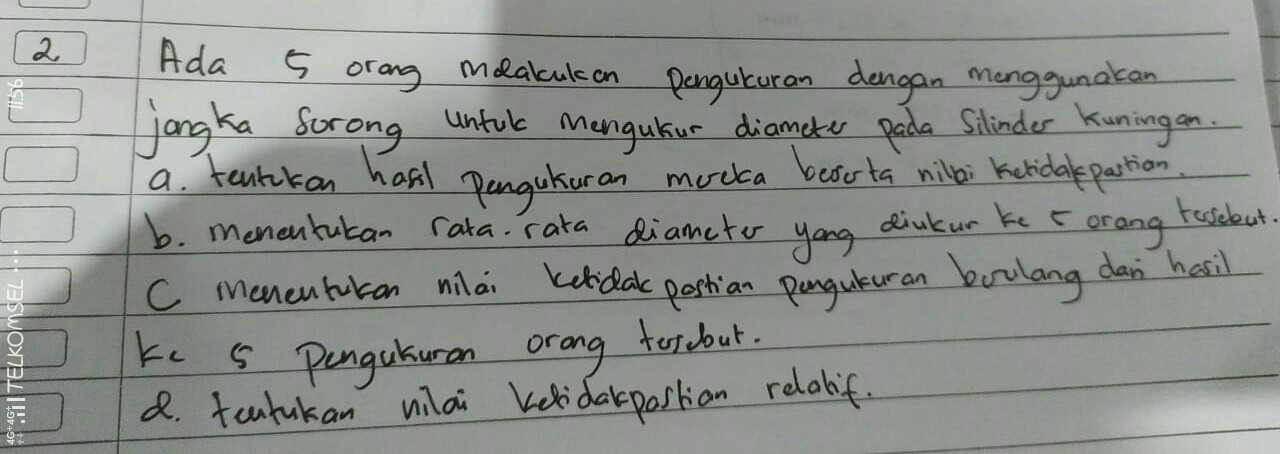 2 Ada 5 orang melakukan pengukuran dengan menggunakan
jangka sorong untuk mengukur diameter pada silinder kuningan.
a. tentukan hasil pengukuran mereka beserta nilai ketidakpastian.
b. menentukan rata-rata diameter yang diukur ke 5 orang tersebut.
C menentukan nilai ketidak pastian pengukuran berulang dari hasil
ke 5 pengukuran orang tersebut.
d. tentukan nilai ketidakpastian relatif.
4G+ 4G+ TELKOMSEL ... 11:56